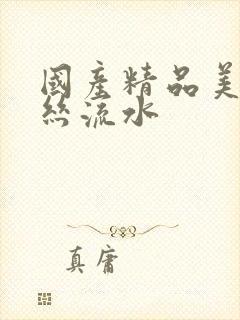 國產精品美
絲流水
真庸